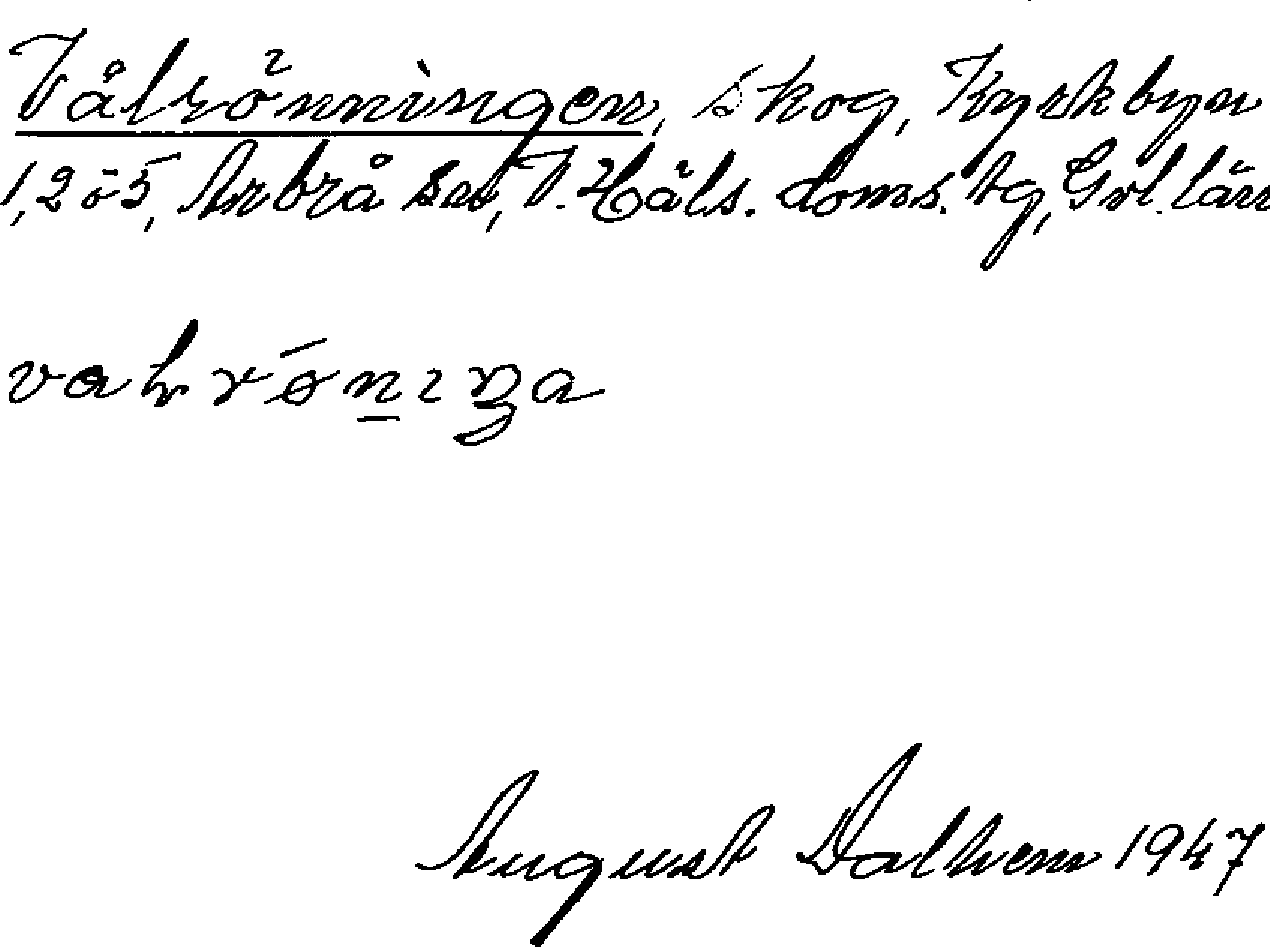 Vålrönningen, skog, Kyrkbyn
1,2 o 5, Arbrå sn, V. Häls. doms. tg, Gvl. län
August Dalhem 1947